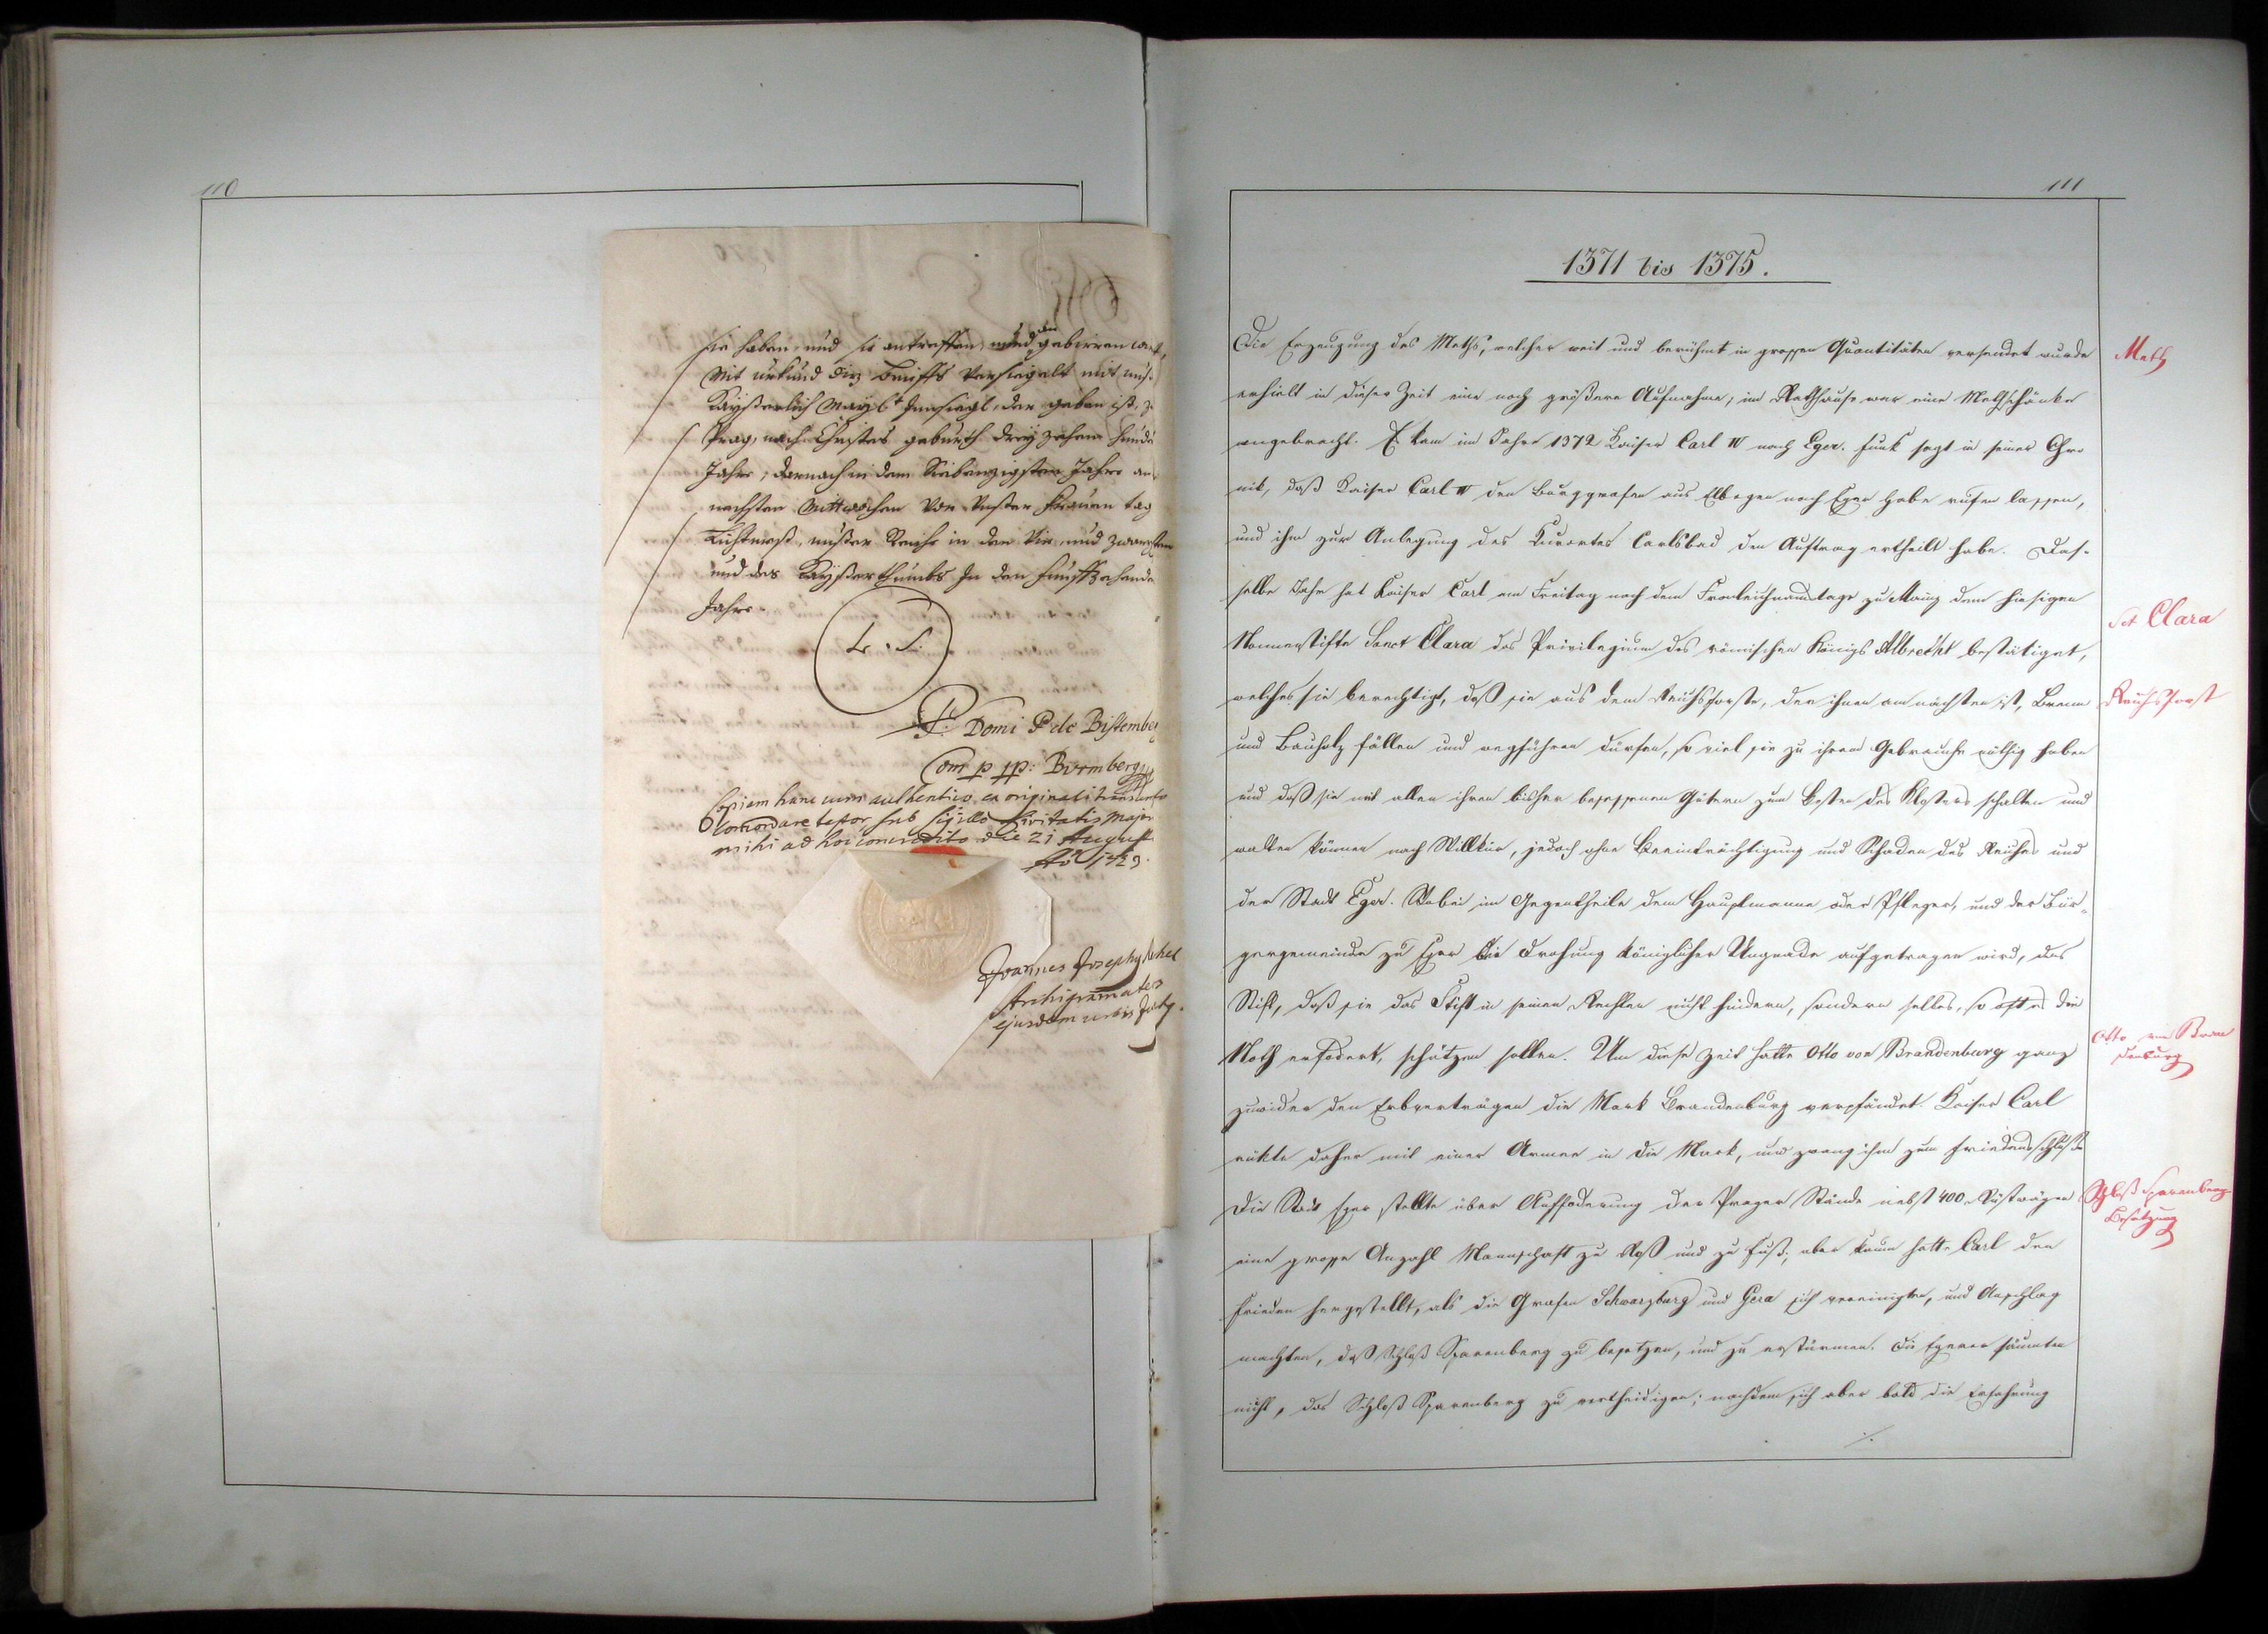 110
sie haben, und sie antreffen, und gebieren
Mit urkund diz brieffs versiegelt mit uns.
Kayßerlich Mayst Insiegl, der geben ist, z
Prag, nach Christes geburth dreyzehen hunde
Jahre, darnach in dem Siebenzigsten Jahre an
nechsten Mittwochen vor unser Frauen tag
Lichtmeß, unßer Reiche in dem Vier und zwanzsten
und des Kayßerthumbs In dem funffzehende
Jahre.
L. S.
P. Domi P de
Com p pp: Burmberg
Copiam hanc cum authentico ex originali
concordare testor sub sigillo Civitatis Majori
mihi ad hoc concredito die 21 August
Ao 1723.
Joannes Josephy
Archigrammateus
ejusdem urbis
111
1371 bis 1375.
Die Erzeugung des Meths, welcher weit und berühmt in grossen Quantitäten versendet wurde
erhielt in dieser Zeit eine noch größere Aufnahme, im Rathhause war eine Methschänke
angebracht. Es kam im Jahre 1372 Kaiser Carl IV nach Eger. Funk sagt in seiner Chro
nik, daß Kaiser Carl IV den Burggrafen aus Elbogen nach Eger habe rufen lassen,
und ihm zur Anlegung des Kurortes Carlsbad den Auftrag ertheilt habe. Das-
selbe Jahr hat Kaiser Carl am Freitag nach dem Fronleichnamstage zu Mainz dem hiesigen
Nonnenstifte Sanct Clara das Privilegium des römischen Königs Albrecht bestätiget,
welches sie berechtigt, daß sie aus dem Reichsforste, der ihnen am nächsten ist, Brenn
und Bauholz fällen und wegführen dürfen, so viel sie zu ihrem Gebrauche nöthig haben
und daß sie mit allen ihren bisher besessenen Gütern zum Besten des Klosters schalten und
walten können nach Willkür, jedoch ohne Beeinträchtigung und Schaden des Reiches und
der Stadt Eger. Wobei im Gegentheile dem Hauptmanne oder Pfleger, und der Bür-
gergemeinde zu Eger die Drohung königlicher Ungnade aufgetragen wird, das
Stift, daß sie das Stift in seinen Rechten nicht hindern, sondern selbes, so oft es die
Noth erfodert, schützen sollen. Um diese Zeit hatte Otto von Brandenburg ganz
zuwider den Erbverträgen die Mark Brandenburg verpfändet. Kaiser Carl
rükte daher mit einer Armee in die Mark, und zwang ihn zum Friedensschluß.
Die Stadt Eger stellte über Auffoderung der Prager Stände nebst 400 Rüstwägen
eine grosse Anzahl Mannschaft zu Roß und zu Fuß; aber kaum hatte Carl den
Frieden hergestellt, als die Grafen Schwarzburg und Gera sich vereinigten, und Anschlag
machten, das Schloß Sparenberg zu besetzen, und zu erstürmen. Die Egerer säumten
nicht, das Schloß Sparenberg zu vertheidigen; nachdem sich aber bald die Erfahrung
./.
Meth
Sct Clara
Reichsforst
Otto von Bran
denburg
Schloß Sparenberg
Besatzung